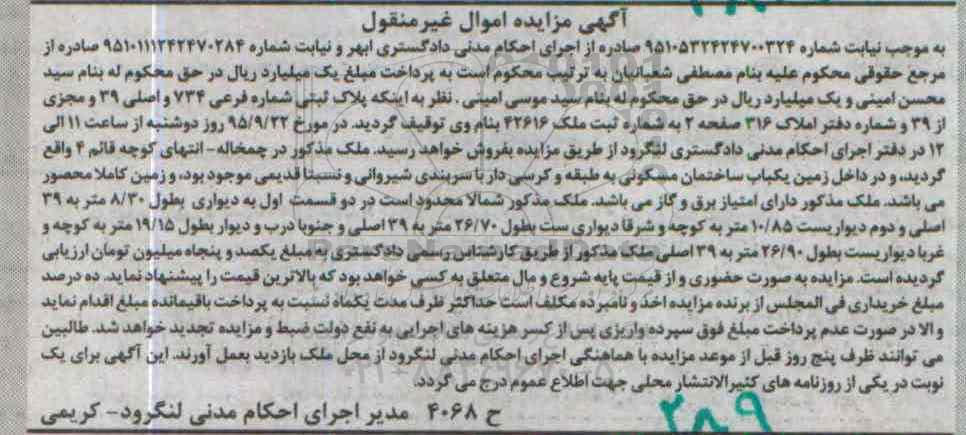 آگهی مزایده اموال غیرمنقول
به موجب نیابت شماره ۹۵۱۰۵۳۲۴۲۴۷۰۰۳۲۴ صادره از اجرای احکام مدنی دادگستری ابهر و نیابت شماره ۹۵۱۰۱۱۱۲۴۲۴۷۰۲۸۴ صادره از
مرجع حقوقی محکوم علیه بنام مصطفی شعبانیان به ترتیب محکوم است به پرداخت مبلغ یک میلیارد ریال در حق محکوم له بنام سید
محسن امینی و یک میلیارد ریال در حق محکوم له بنام سید موسی امینی . نظر به اینکه پلاک ثبتی شماره فرعی ۷۳۴ و اصلی ۳۹ و مجزی
از ۳۹ و شماره دفتر املاک ۳۱۶ صفحه ۲ به شماره ثبت ملک ۴۲۶۱۶ بنام وی توقیف گردید. در مورخ ۹۵/۹/۲۲ روز دوشنبه از ساعت ۱۱ الی
۱۲ در دفتر اجرای احکام مدنی دادگستری لنگرود از طریق مزایده بفروش خواهد رسید. ملک مذکور در چمخاله- انتهای کوچه قائم ۴ واقع
گردیده و در داخل زمین یکباب ساختمان مسکونی به طبقه و کرسی دار با سربندی شیروانی و نسبتا قدیمی موجود بوده و زمین کاملا محصور
می باشد. ملک مذکور دارای امتیاز برق و گاز می باشد. ملک مذکور شمالا محدود است در دو قسمت اول به دیواری بطول ۸/۳۰ متر به ۳۹
اصلی و دوم دیواریست ۱۰/۸۵ متر به کوچه و شرقا دیواری ست بطول ۲۶/۷۰ متر به ۳۹ اصلی و جنوبا درب و دیوار بطول ۱۹/۱۵ متر به کوچه و
غربا دیواریست بطول ۲۶/۹۰ متر به ۳۹ اصلی ملک مذکور از طریق کارشناس رسمی دادگستری به مبلغ یکصد و پنجاه میلیون تومان ارزیابی
گردیده است. مزایده به صورت حضوری و از قیمت پایه شروع و مال متعلق به کسی خواهد بود که بالاترین قیمت را پیشنهاد نماید. ده درصد
مبلغ خریداری فی المجلس از برنده مزایده اخذ و نامبرده مکلف است حداکثر ظرف مدت یکماه نسبت به پرداخت باقیمانده مبلغ اقدام نماید
و الا در صورت عدم پرداخت مبلغ فوق سپرده واریزی پس از کسر هزینه های اجرایی به نفع دولت ضبط و مزایده تجدید خواهد شد. طالبین
می توانند ظرف پنج روز قبل از موعد مزایده با هماهنگی اجرای احکام مدنی لنگرود از محل ملک بازدید بعمل آورند. این آگهی برای یک
نوبت در یکی از روزنامه های کثیرالانتشار محلی جهت اطلاع عموم درج می گردد.
ح ۴۰۶۸ مدیر اجرای احکام مدنی لنگرود- کریمی
۲۸۹